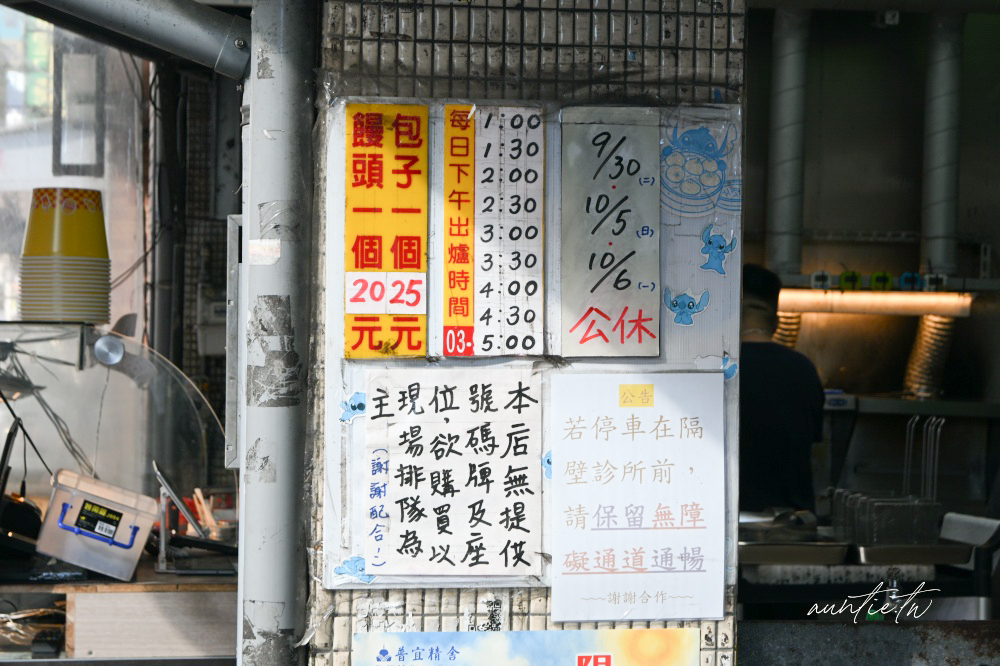 包子一個25元
饅頭一個20元
每日下午出爐時間
03-
1:00
1:30
2:00
2:30
3:00
3:30
4:00
4:30
5:00
9/30(二)
10/5(日)
10/6(一)
公休
本店無提供
號碼牌及座
位,欲購買以
現場排隊為
主
(謝謝配合!)
公告
若停車在隔
壁診所前，
請保留無障
礙通道通暢
~~謝謝合作~~
普宜精舍
auntie.tw